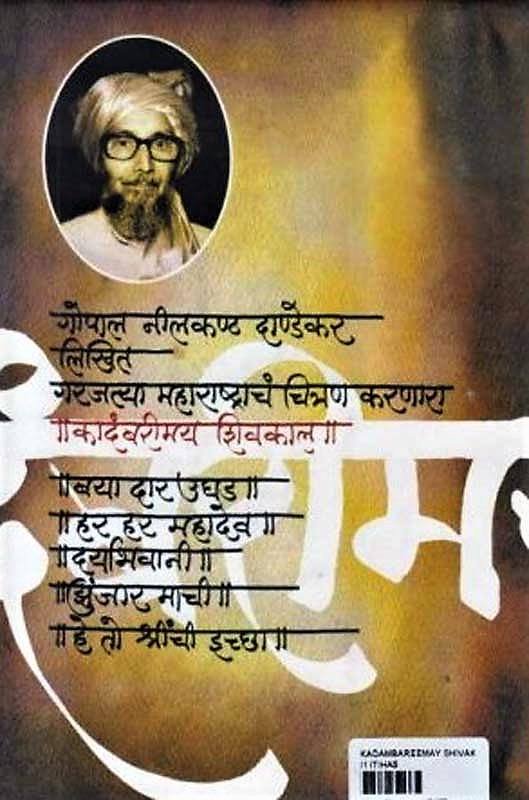 गोपाल नीलकण्ठ दाण्डेकर
लिखित
गरजत्या महाराष्ट्राचं चित्रण करणारा
॥कादंबरीमय शिवकाल॥
॥बया दार उघड॥
॥हर हर महादेव॥
॥दर्याभवानी॥
॥झुंजार माची॥
॥हे तो श्रींची इच्छा॥
KADAMBAREEMAY SHIVAK